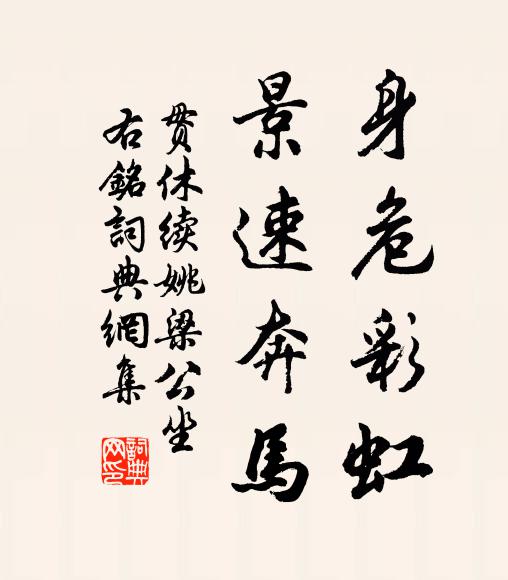 身危彩虹
景速奔馬
貫休续姚梁公坐
右銘詞典網集
詞典
网印